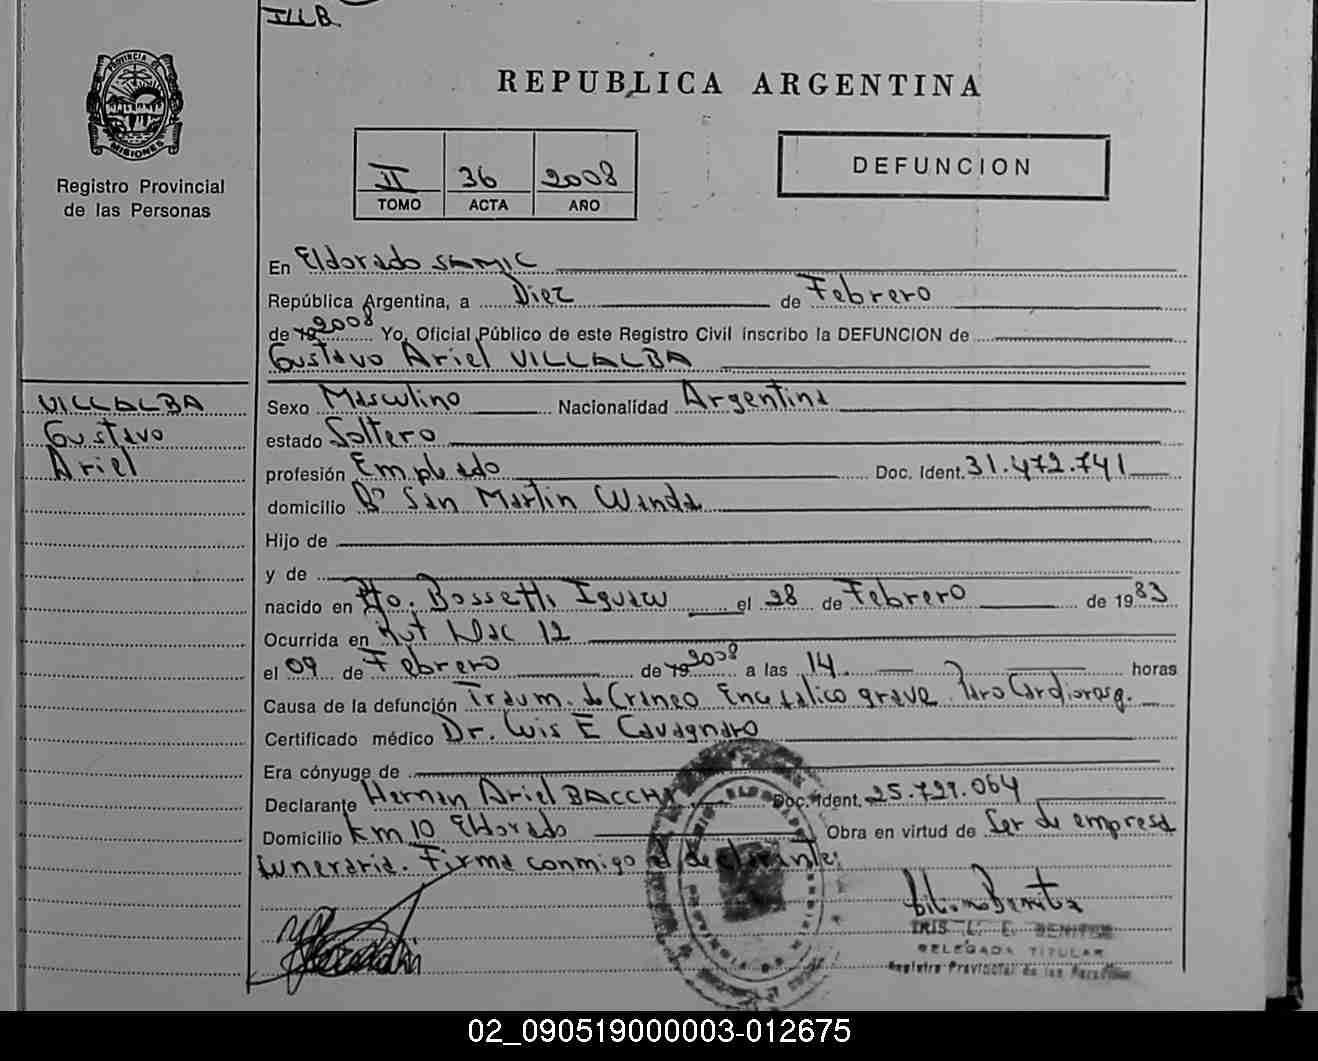 ILLB
PROVINCIA DE
MISIONES
Registro Provincial
de las Personas
REPUBLICA ARGENTINA
II 36 2008
TOMO ACTA AÑO
DEFUNCION
En Eldorado SAMIC
República Argentina, a Diez de Febrero
de 19 2008 Yo, Oficial Público de este Registro Civil inscribo la DEFUNCION de
Gustavo Ariel VILLALBA
VILLALBA
Gustavo
Ariel
Sexo Masculino Nacionalidad Argentina
estado Soltero
profesión Empleado Doc. Ident. 31.472.741
domicilio Bº San Martin Wanda
Hijo de
y de
nacido en Pto. Bossetti Iguazu el 28 de Febrero de 1983
Ocurrida en Rut Nac 12
el 09 de Febrero de 19 2008 a las 14 horas
Causa de la defunción Traum. de Craneo Encefalico grave Paro Cardioresp.
Certificado médico Dr. Luis E Cavagnaro
Era cónyuge de
Declarante Hernan Ariel BACCHI Doc. Ident. 25.729.064
Domicilio Km 10 Eldorado Obra en virtud de Ser de empresa
funeraria. Firma conmigo el declarante:
IRIS L. E. BENITEZ
DELEGADA TITULAR
Registro Provincial de las Personas
02_090519000003-012675